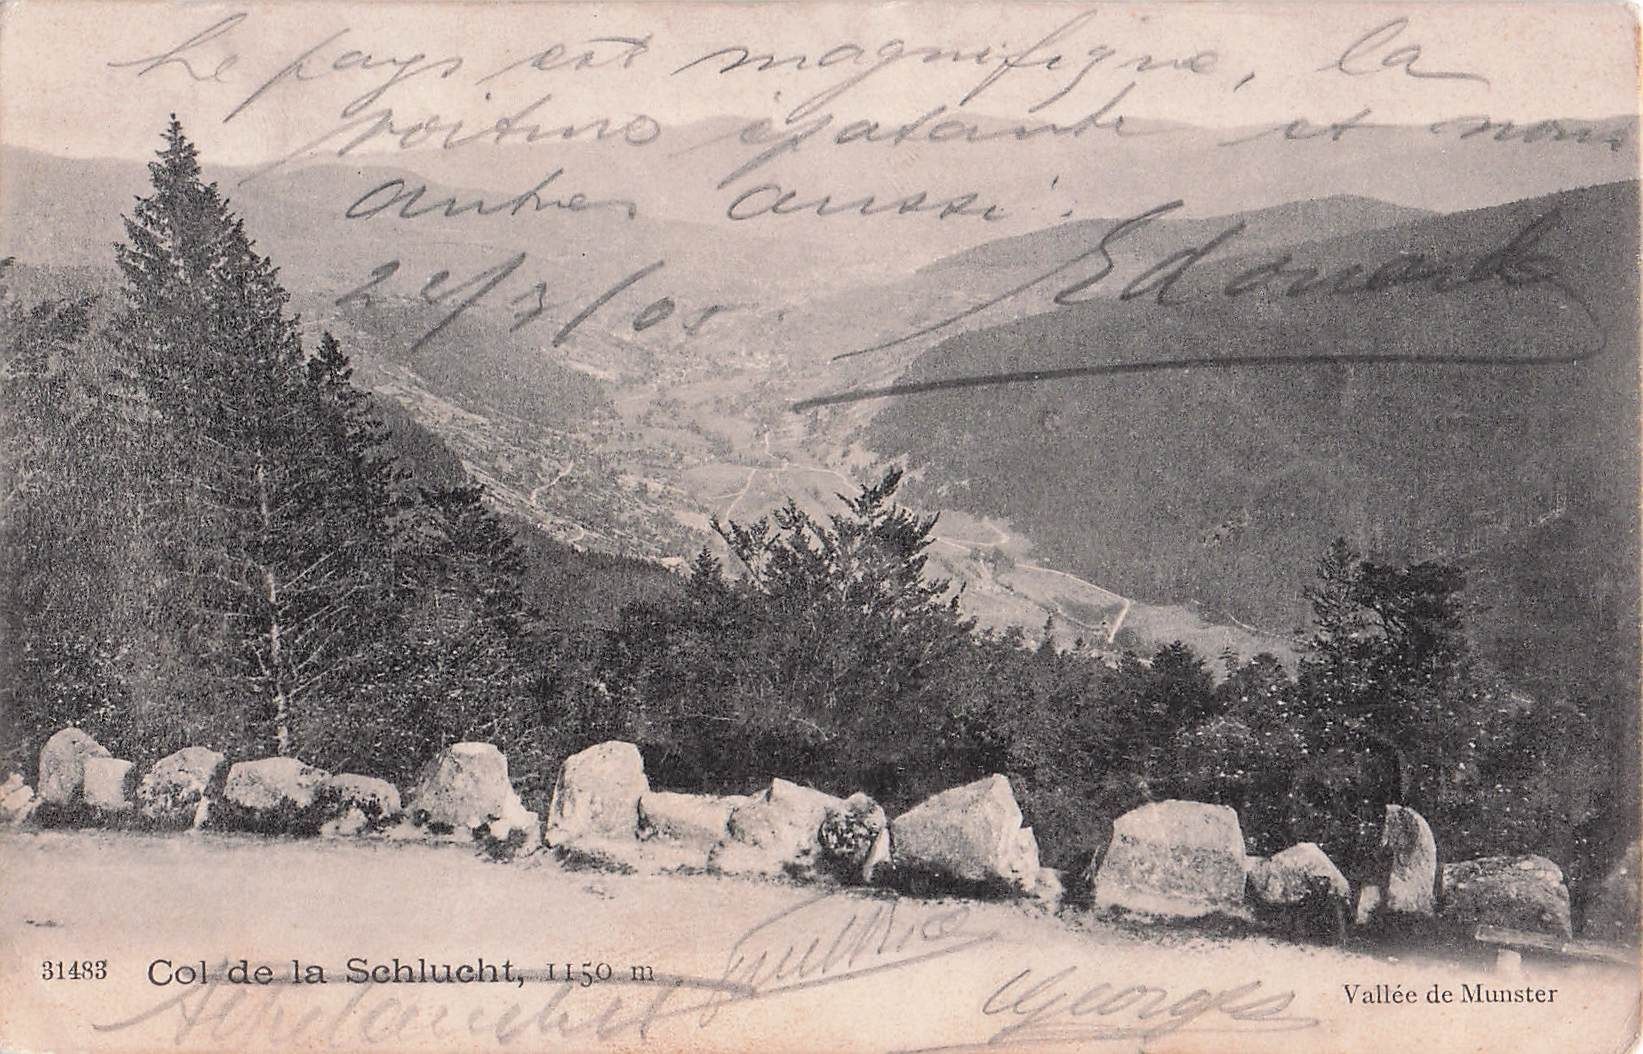 Le pays est magnifique, la
voiture épatante et nous
autres aussi.
Edouard
31483 Col de la Schlucht, 1150 m
Georges
Vallée de Munster